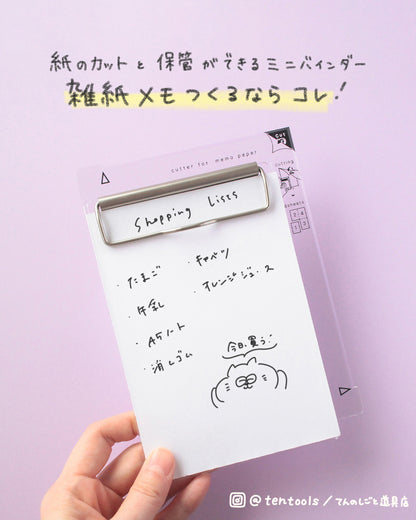 紙のカットと保管ができるミニバインダー
雑紙メモつくるならコレ!
CUT
cutter for memo paper
Shopping Lists
・たまご
・牛乳
・A5ノート
・消しゴム
・キャベツ
・オレンジジュース
今日、買う!
@tentools/てんのしごと道具店